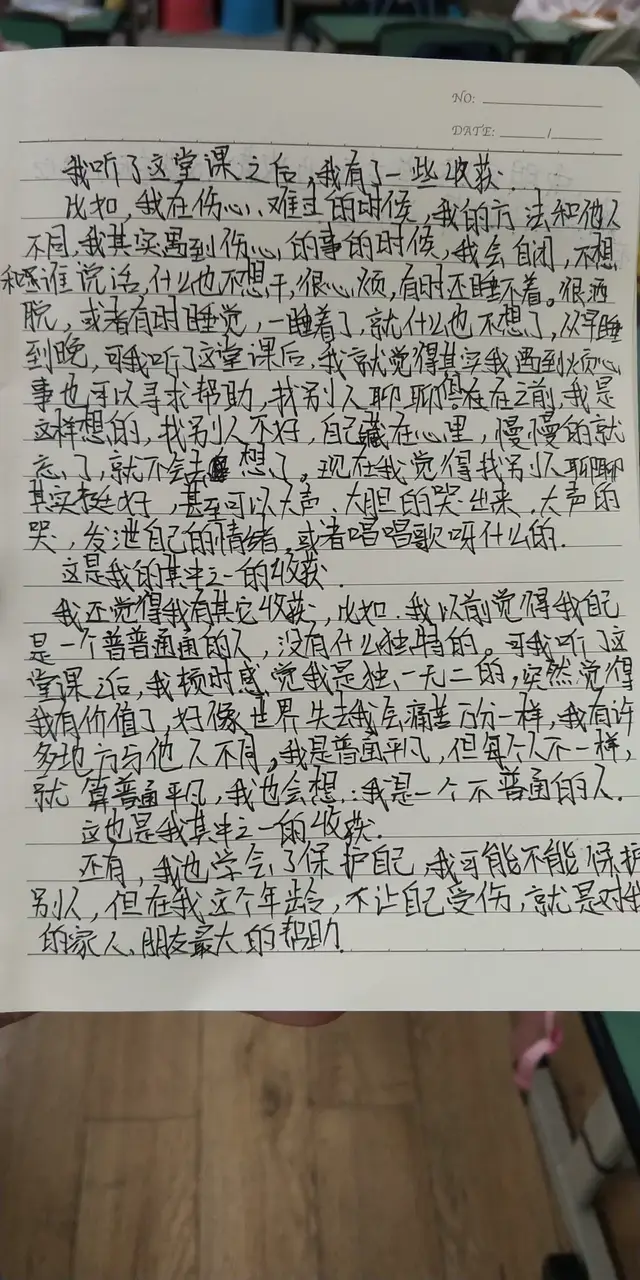 NO:
DATE: /
我听了这堂课之后,我有了一些收获.
比如,我在伤心、难过的时候,我的方法和他人
不同,我其实遇到伤心的事的时候,我会自闭,不想
和谁说话,什么也不想干,很心烦,有时还睡不着。很洒
脱,或者有时睡觉,一睡着了,就什么也不想了,从早睡
到晚,可我听了这堂课后,我就觉得其实我遇到烦心
事也可以寻求帮助,找别人聊聊,在之前,我是
这样想的,找别人不好,自己藏在心里,慢慢的就
忘了,就不会去想了。现在我觉得找别人聊聊
其实挺好,甚至可以大声、大胆的哭出来.大声的
哭,发泄自己的情绪,或者唱唱歌呀什么的.
这是我的其中之一的收获.
我还觉得我有其它收获,比如.我以前觉得我自己
是一个普普通通的人,没有什么独特的。可我听了这
堂课之后,我顿时感觉我是独一无二的,突然觉得
我有价值了,好像世界失去我会痛苦万分一样,我有许
多地方与他人不同,我是普通平凡,但每个人不一样,
就算普通平凡,我也会想:我是一个不普通的人.
这也是我其中之一的收获.
还有,我也学会了保护自己,我可能不能保护
别人,但在我这个年龄,不让自己受伤,就是对我
的家人、朋友最大的帮助.